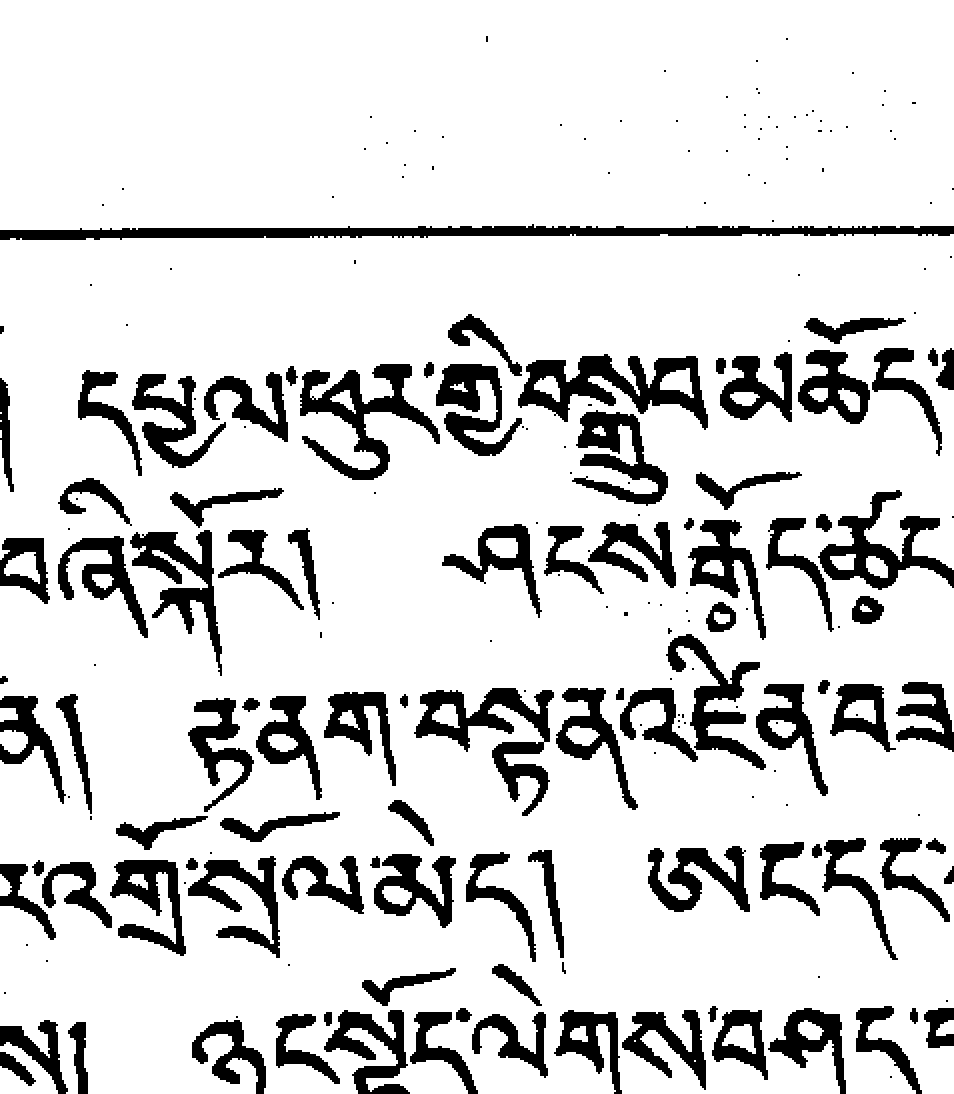 ། དཔལ་ཕུར་གྱི་བསྒྲུབ་མཆོད་
བཞི་སྐོར། ཤངས་རྒོད་ཚང
ན། རྟ་ནག་བསྟན་འཛིན་བཟ
ར་འགྲོ་སྲོལ་མེད། ཨང་དང་
ས། ཉང་སྟོད་ལེགས་བཤད་